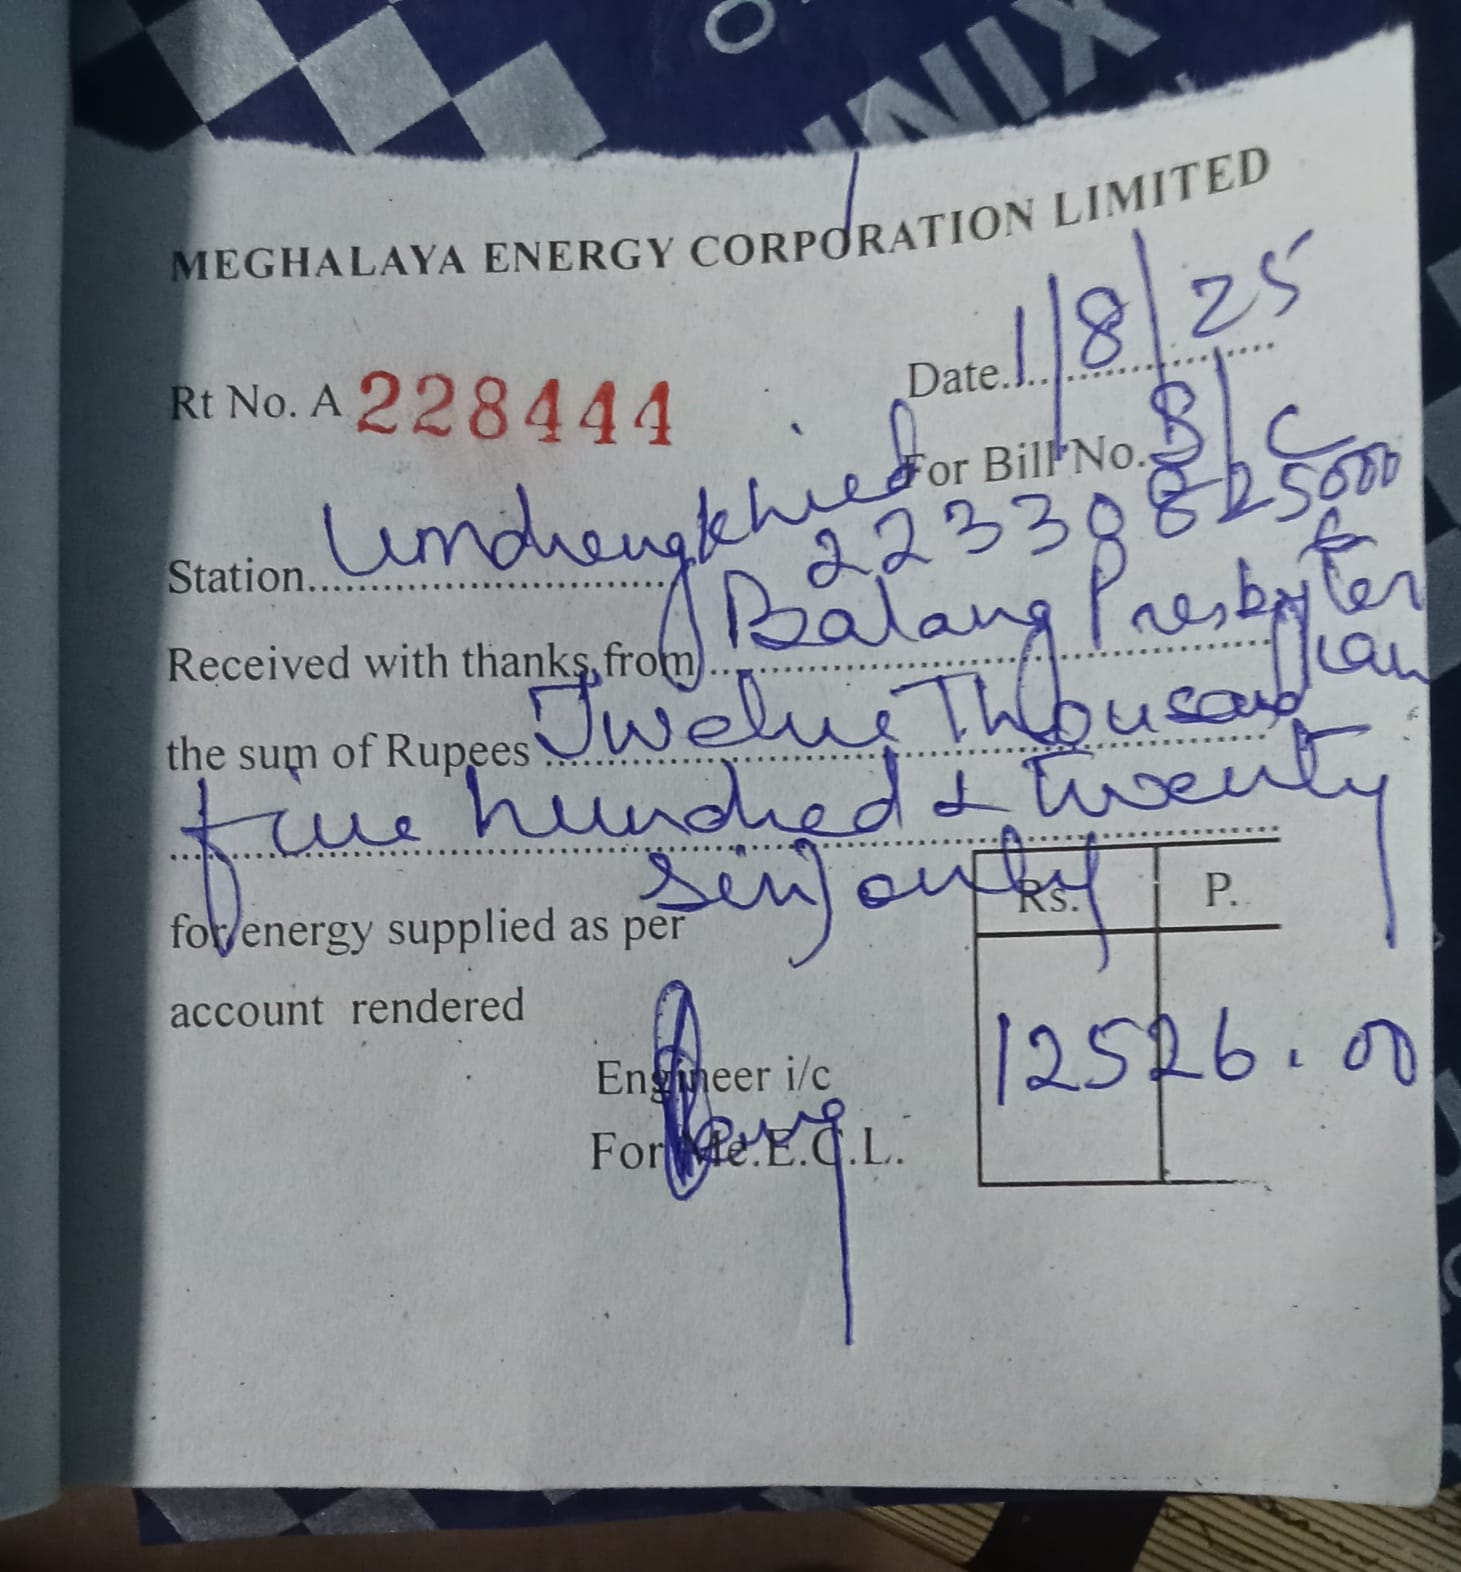 NIX
MEGHALAYA ENERGY CORPORATION LIMITED
Date. 1/8/25
Rt No. A 228444
For Bill No. B/C
Station Umdiengkhied 22330825000
Received with thanks from Balang Presbyter
ian
the sum of Rupees Twelve Thousand
five hundred & Twenty
six only
for energy supplied as per
account rendered
Rs. P.
12526.00
Engineer i/c
For Me.E.C.L.